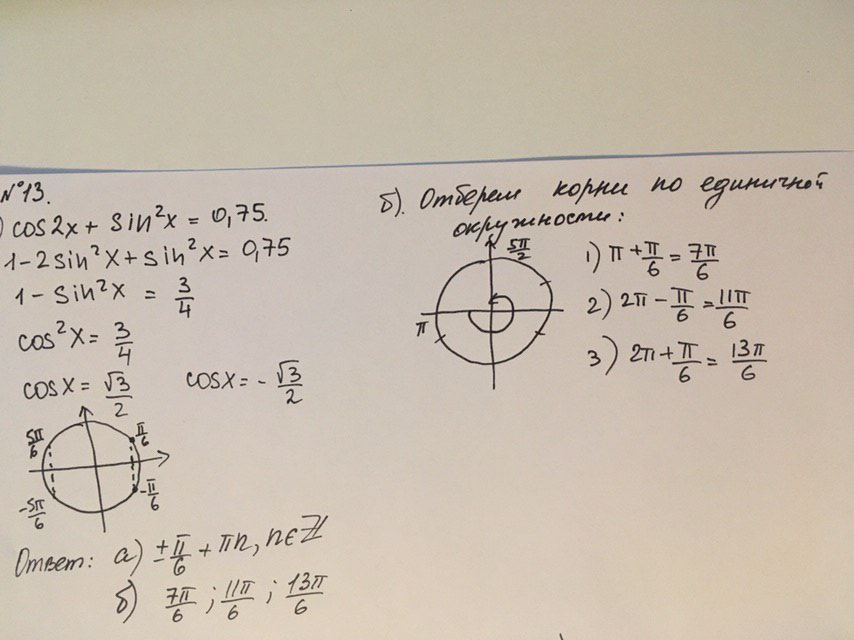 №13.
) cos2x + sin²x = 0,75.
1-2sin²x+sin²x = 0,75
1 - sin²x = 3/4
cos²x = 3/4
cosx = √3/2 cosx = - √3/2
5π/6 π/6
-5π/6 -π/6
Ответ: а) ±π/6 + πn, n∈Z
б) 7π/6 ; 11π/6 ; 13π/6
б). Отберем корни по единичной
окружности:
5π/2
π
1) π + π/6 = 7π/6
2) 2π - π/6 = 11π/6
3) 2π + π/6 = 13π/6